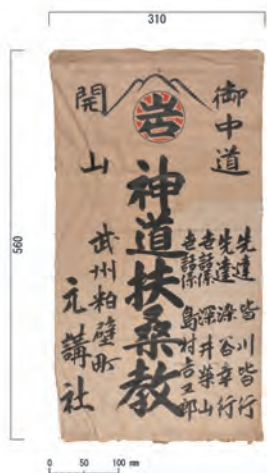 310
560
御中道
開山
岩
神道扶桑教
先達 皆川皆行
先達 染谷幸行
世話係 深井榮山
世話係 島村吉五郎
武州粕壁町
元講社
0 50 100 mm